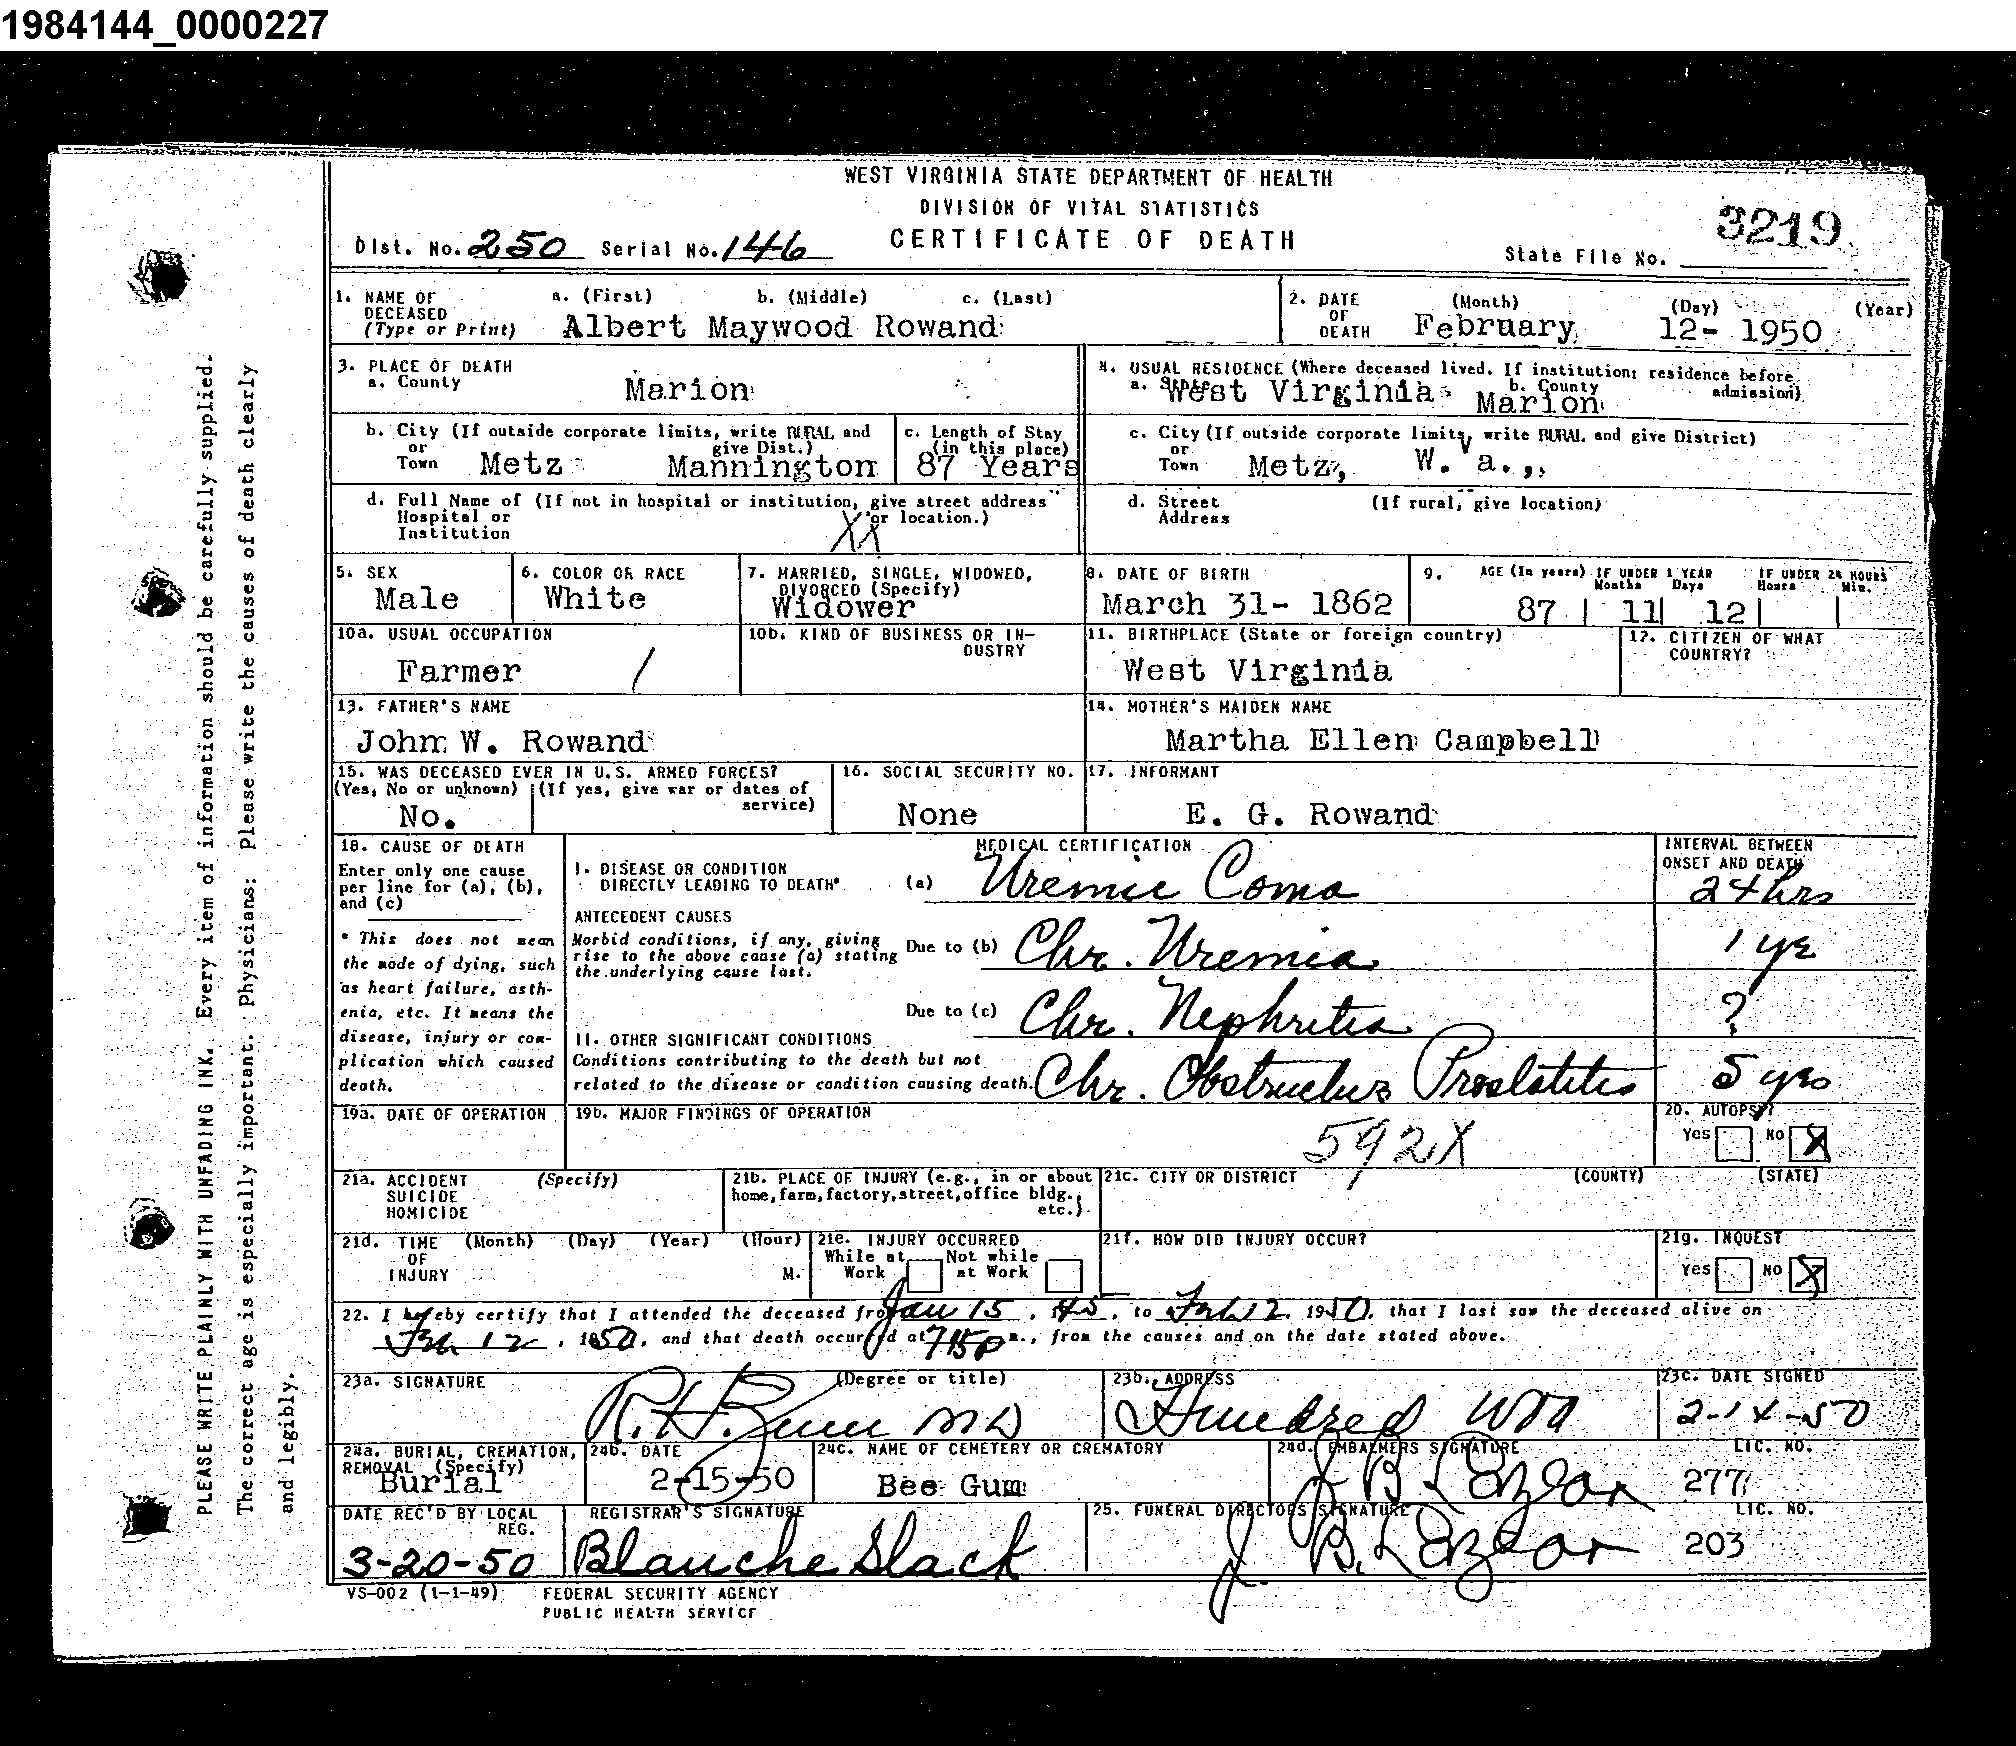 1984144_0000227
WEST VIRGINIA STATE DEPARTMENT OF HEALTH
DIVISION OF VITAL STATISTICS
CERTIFICATE OF DEATH
Dist. No. 250 Serial No. 146
3219
State File No.
1. NAME OF DECEASED (Type or Print) a. (First) b. (Middle) c. (Last)
Albert Maywood Rowand
2. DATE OF DEATH (Month) (Day) (Year)
February 12- 1950
3. PLACE OF DEATH
a. County Marion
4. USUAL RESIDENCE (Where deceased lived. If institution: residence before admission)
a. State West Virginia b. County Marion
b. City (If outside corporate limits, write RURAL and give Dist.)
or Town Metz Mannington
c. Length of Stay (in this place)
87 Years
c. City (If outside corporate limits, write RURAL and give District)
or Town Metz, W. Va.,
d. Full Name of (If not in hospital or institution, give street address or location.)
Hospital or Institution XX
d. Street Address (If rural, give location)
5. SEX
Male
6. COLOR OR RACE
White
7. MARRIED, SINGLE, WIDOWED, DIVORCED (Specify)
Widower
8. DATE OF BIRTH
March 31- 1862
9. AGE (In years) IF UNDER 1 YEAR Months Days IF UNDER 24 HOURS Hours Min.
87 11 12
10a. USUAL OCCUPATION
Farmer /
10b. KIND OF BUSINESS OR INDUSTRY
11. BIRTHPLACE (State or foreign country)
West Virginia
12. CITIZEN OF WHAT COUNTRY?
13. FATHER'S NAME
John W. Rowand
14. MOTHER'S MAIDEN NAME
Martha Ellen Campbell
15. WAS DECEASED EVER IN U.S. ARMED FORCES?
(Yes, No or unknown) (If yes, give war or dates of service)
No.
16. SOCIAL SECURITY NO.
None
17. INFORMANT
E. G. Rowand
18. CAUSE OF DEATH
Enter only one cause per line for (a), (b), and (c)
* This does not mean the mode of dying, such as heart failure, asthenia, etc. It means the disease, injury or complication which caused death.
MEDICAL CERTIFICATION
INTERVAL BETWEEN ONSET AND DEATH
I. DISEASE OR CONDITION DIRECTLY LEADING TO DEATH* (a) Uremic Coma 24 hrs
ANTECEDENT CAUSES
Morbid conditions, if any, giving rise to the above cause (a) stating the underlying cause last.
Due to (b) Chr. Uremia 1 yr
Due to (c) Chr. Nephritis ?
II. OTHER SIGNIFICANT CONDITIONS
Conditions contributing to the death but not related to the disease or condition causing death.
Chr. Obstructive Prostatitis 5 yrs
19a. DATE OF OPERATION
19b. MAJOR FINDINGS OF OPERATION
592X
20. AUTOPSY?
Yes No X
21a. ACCIDENT SUICIDE HOMICIDE (Specify)
21b. PLACE OF INJURY (e.g., in or about home, farm, factory, street, office bldg., etc.)
21c. CITY OR DISTRICT (COUNTY) (STATE)
21d. TIME OF INJURY (Month) (Day) (Year) (Hour) M.
21e. INJURY OCCURRED
While at Work Not while at Work
21f. HOW DID INJURY OCCUR?
21g. INQUEST
Yes No X
22. I hereby certify that I attended the deceased from Jan 15, 1945, to Feb 12, 1950, that I last saw the deceased alive on
Feb 12, 1950, and that death occurred at 715P m., from the causes and on the date stated above.
23a. SIGNATURE (Degree or title)
MD
23b. ADDRESS
Hundred WVa
23c. DATE SIGNED
2-14-50
24a. BURIAL, CREMATION, REMOVAL (Specify)
Burial
24b. DATE
2-15-50
24c. NAME OF CEMETERY OR CREMATORY
Bee Gum
24d. EMBALMERS SIGNATURE LIC. NO.
277
DATE REC'D BY LOCAL REG.
3-20-50
REGISTRAR'S SIGNATURE
Blanche Slack
25. FUNERAL DIRECTORS SIGNATURE LIC. NO.
203
VS-002 (1-1-49) FEDERAL SECURITY AGENCY
PUBLIC HEALTH SERVICE
PLEASE WRITE PLAINLY WITH UNFADING INK. Every item of information should be carefully supplied.
The correct age is especially important. Physicians: Please write the causes of death clearly
and legibly.